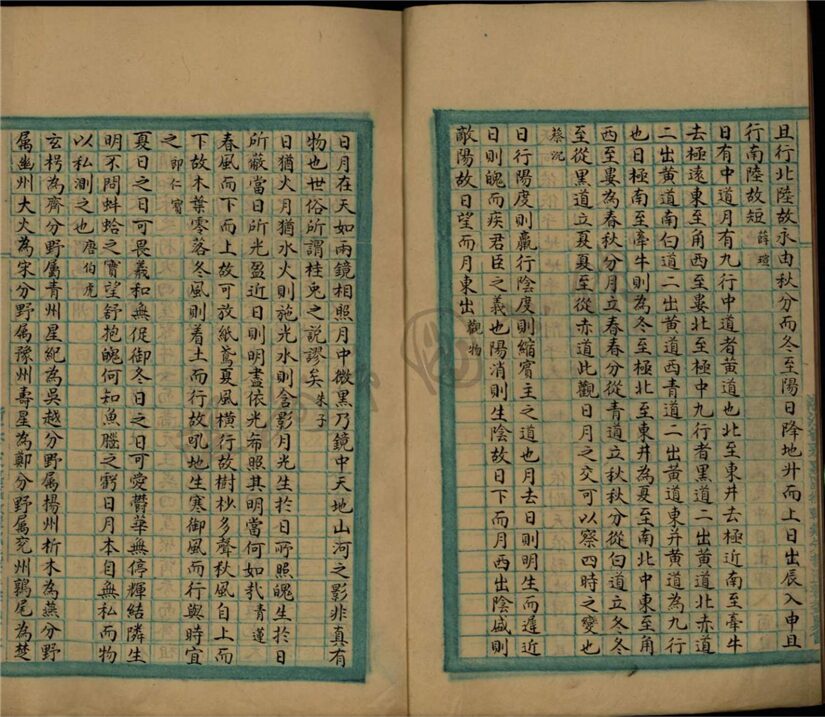 且行北陸故永由秋分而冬至陽日降地升而上日出辰入申且
行南陸故短 薛瑄
日有中道月有九行中道者黃道也北至東井去極近南至牽牛
去極遠東至角西至婁北至極中九行者黑道二出黃道北赤道
二出黃道南白道二出黃道西青道二出黃道東并黃道為九行
也日極南至牽牛則為冬至極北至東井為夏至南北中東至角
西至婁為春秋分月立春春分從青道立秋秋分從白道立冬冬
至從黑道立夏夏至從赤道此觀日月之交可以察四時之變也
蔡沉
日行陽度則贏行陰度則縮賓主之道也月去日則明生而遲近
日則魄而疾君臣之義也陽消則生陰故日下而月西出陰盛則
敵陽故日望而月東出 觀物
日月在天如兩鏡相照月中微黑乃鏡中天地山河之影非真有
物也世俗所謂桂兎之説謬矣 朱子
日猶火月猶水火則施光水則含影月光生於日所照魄生於日
所蔽當日所光盈近日則明盡依光布照其明當何如哉 青蓮
春風而下而上故可放紙鳶夏風橫行故樹杪多聲秋風自上而
下故木葉零落冬風則着土而行故吼地生寒御風而行與時宜
之 郎仁寶
夏日之日可畏羲和無促御冬日之日可愛欝華無停輝結隣生
明不問蚌蛤之實望舒抱魄何知魚腦之虧日月本自無私而物
以私測之也 唐伯虎
玄枵為齊分野屬青州星紀為吳越分野屬揚州析木為燕分野
屬幽州大火為宋分野屬豫州壽星為鄭分野屬兗州鶉尾為楚